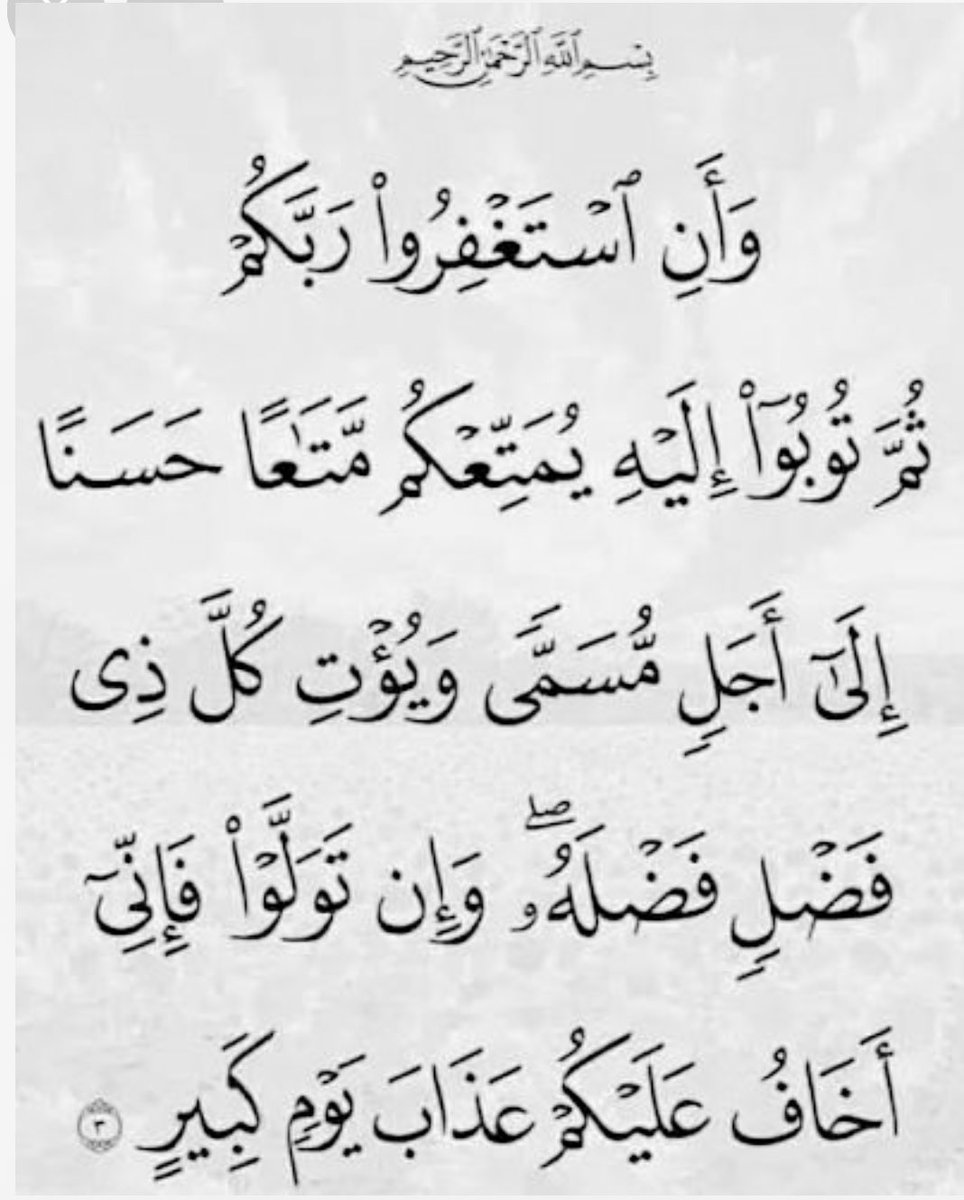 بِسْمِ ٱللَّهِ ٱلرَّحْمَٰنِ ٱلرَّحِيمِ
وَأَنِ ٱسْتَغْفِرُوا۟ رَبَّكُمْ
ثُمَّ تُوبُوٓا۟ إِلَيْهِ يُمَتِّعْكُم مَّتَٰعًا حَسَنًا
إِلَىٰٓ أَجَلٍ مُّسَمًّى وَيُؤْتِ كُلَّ ذِى
فَضْلٍ فَضْلَهُۥ ۖ وَإِن تَوَلَّوْا۟ فَإِنِّىٓ
أَخَافُ عَلَيْكُمْ عَذَابَ يَوْمٍ كَبِيرٍ ٣